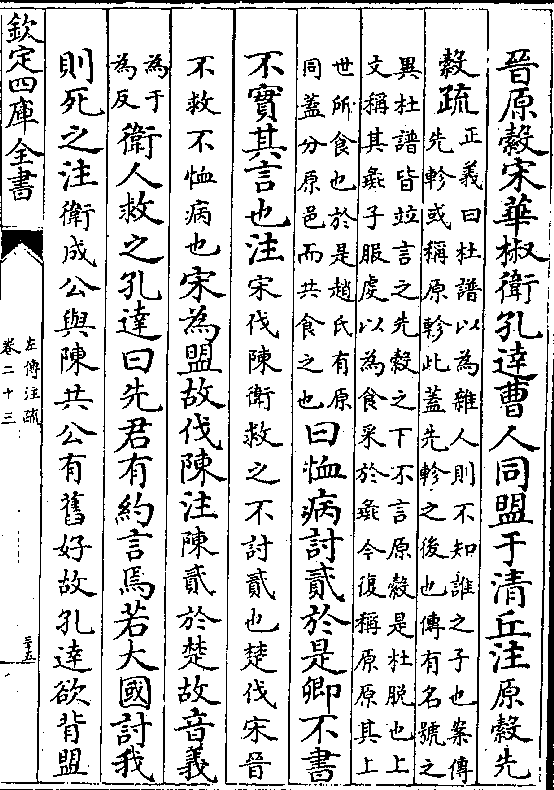 晉原縠宋華椒衛孔達曹人同盟于清丘注原縠先
縠疏
正義曰杜譜以為雜人則不知誰之子也案傳
先軫或稱原軫此蓋先軫之後也傳有名號之
異杜譜皆竝言之先縠之下不言原縠是杜脫也上
文稱其彘子服虔以為食采於彘今復稱原原其上
世所食也於是趙氏有原
同蓋分原邑而共食之也
曰恤病討貳於是卿不書
不實其言也注宋伐陳衛救之不討貳也楚伐宋晉
不救不恤病也宋為盟故伐陳注陳貳於楚故音義
為于
為反
衛人救之孔達曰先君有約言焉若大國討我
則死之注衛成公與陳共公有舊好故孔達欲背盟
欽定四庫全書
左傳注疏
卷二十三